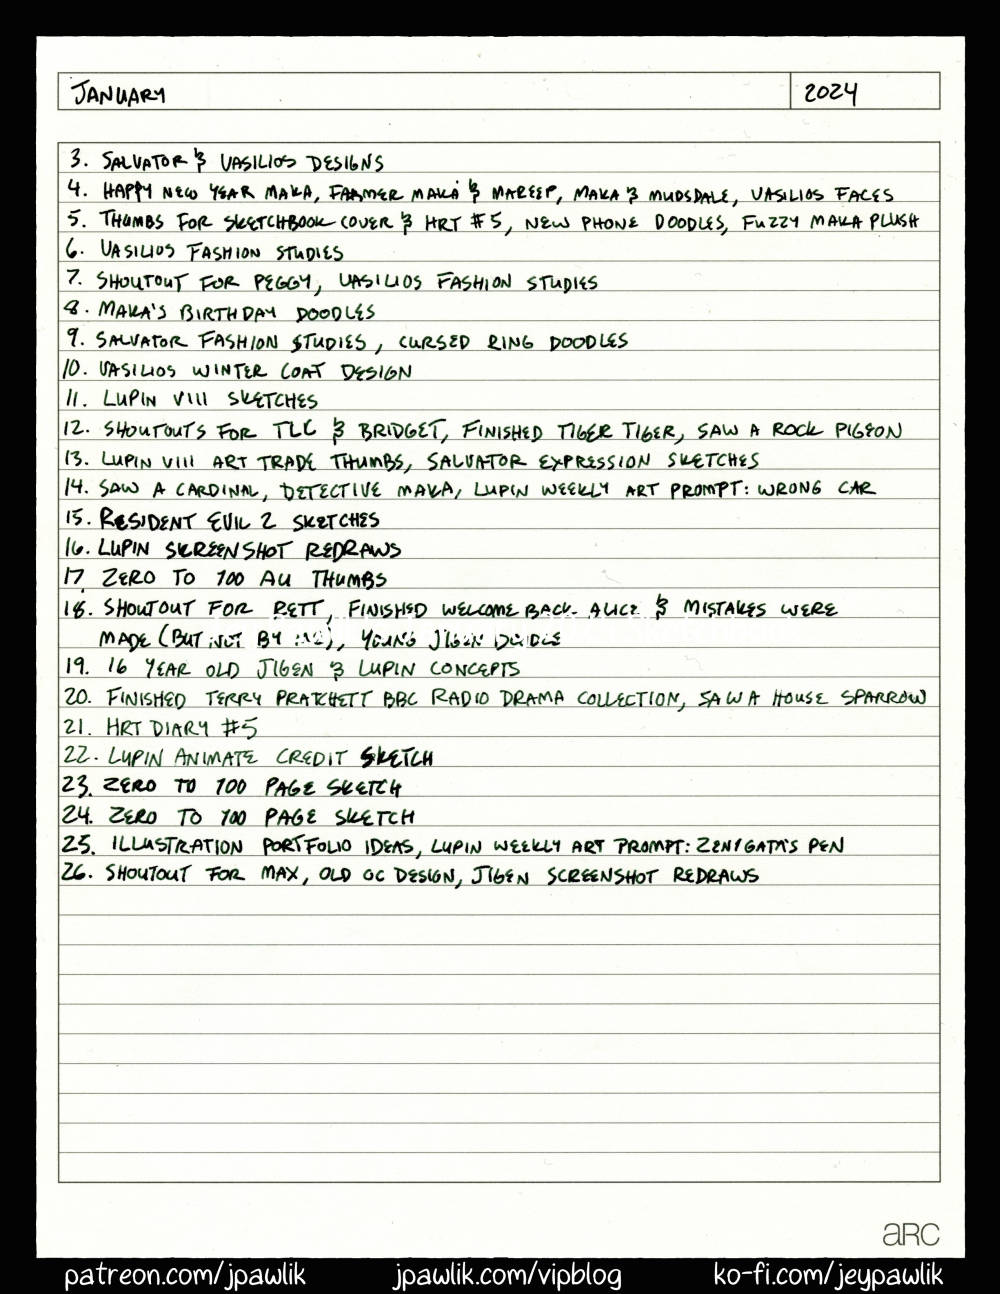 JANUARY 2024
3. SALVATOR & VASILIOS DESIGNS
4. HAPPY NEW YEAR MAKA, FARMER MAKA & MAREEP, MAKA & MUDSDALE, VASILIOS FACES
5. THUMBS FOR SKETCHBOOK COVER & HRT #5, NEW PHONE DOODLES, FUZZY MAKA PLUSH
6. VASILIOS FASHION STUDIES
7. SHOUTOUT FOR PEGGY, VASILIOS FASHION STUDIES
8. MAKA'S BIRTHDAY DOODLES
9. SALVATOR FASHION STUDIES, CURSED RING DOODLES
10. VASILIOS WINTER COAT DESIGN
11. LUPIN VIII SKETCHES
12. SHOUTOUTS FOR TLC & BRIDGET, FINISHED TIGER TIGER, SAW A ROCK PIGEON
13. LUPIN VIII ART TRADE THUMBS, SALVATOR EXPRESSION SKETCHES
14. SAW A CARDINAL, DETECTIVE MAKA, LUPIN WEEKLY ART PROMPT: WRONG CAR
15. RESIDENT EVIL 2 SKETCHES
16. LUPIN SKREENSHOT REDRAWS
17. ZERO TO 100 AU THUMBS
18. SHOUTOUT FOR RETT, FINISHED WELCOME BACK ALICE & MISTAKES WERE
MADE (BUT NOT BY ME), YOUNG JIGEN DOODLE
19. 16 YEAR OLD JIGEN & LUPIN CONCEPTS
20. FINISHED TERRY PRATCHETT BBC RADIO DRAMA COLLECTION, SAW A HOUSE SPARROW
21. HRT DIARY #5
22. LUPIN ANIMATE CREDIT SKETCH
23. ZERO TO 100 PAGE SKETCH
24. ZERO TO 100 PAGE SKETCH
25. ILLUSTRATION PORTFOLIO IDEAS, LUPIN WEEKLY ART PROMPT: ZENIGATA'S PEN
26. SHOUTOUT FOR MAX, OLD OC DESIGN, JIGEN SCREENSHOT REDRAWS
aRC
patreon.com/jpawlik jpawlik.com/vipblog ko-fi.com/jeypawlik